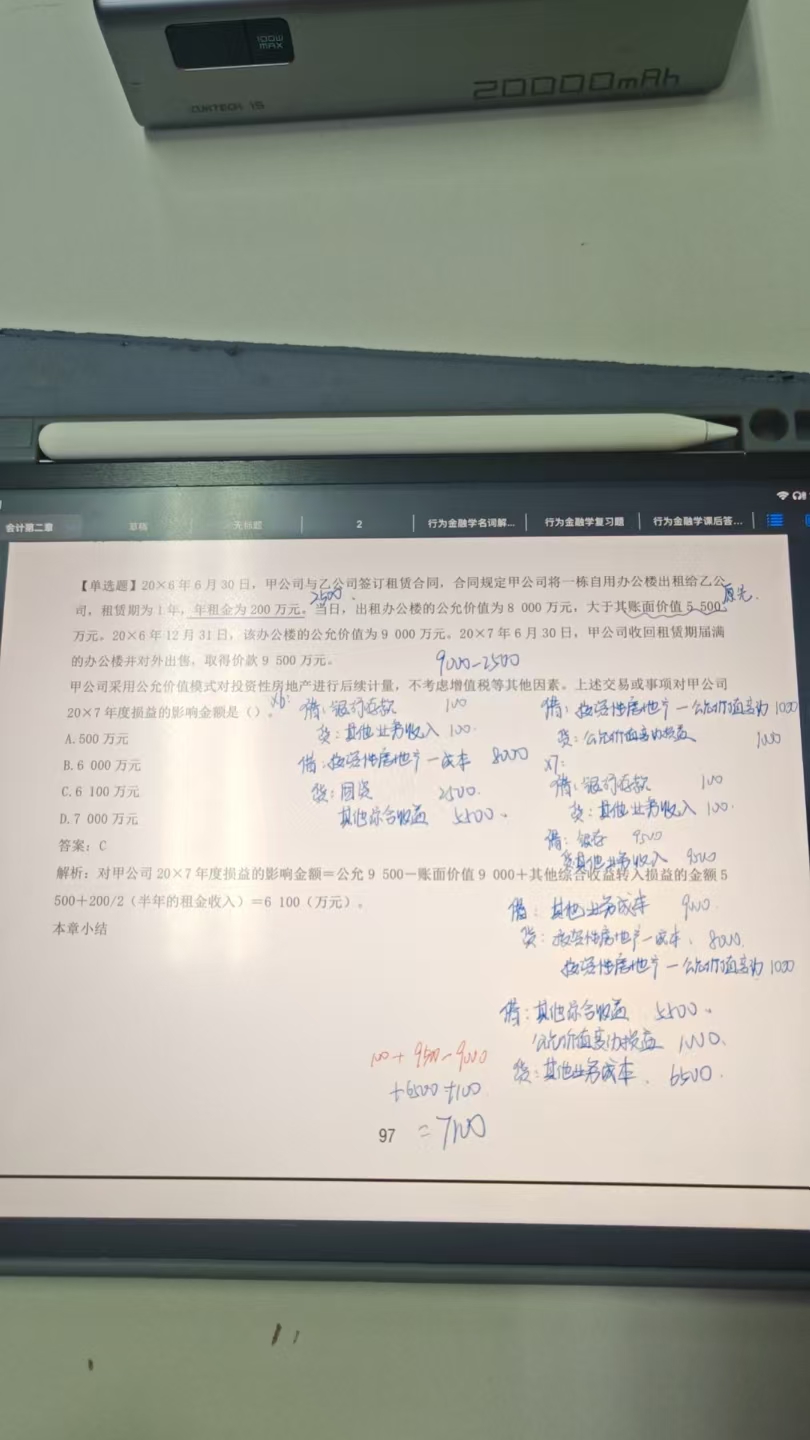 100W
MAX
20000mAh
CUKTECH 15
会计第二章
草稿
无标题
2
行为金融学名词解...
行为金融学复习题
行为金融学课后答...
【单选题】20×6年6月30日，甲公司与乙公司签订租赁合同，合同规定甲公司将一栋自用办公楼出租给乙公
2500
原先.
司，租赁期为1年，年租金为200万元。当日，出租办公楼的公允价值为8 000万元，大于其账面价值5 500
万元。20×6年12月31日，该办公楼的公允价值为9 000万元。20×7年6月30日，甲公司收回租赁期届满
的办公楼并对外出售，取得价款9 500万元。
9000-2500
甲公司采用公允价值模式对投资性房地产进行后续计量，不考虑增值税等其他因素。上述交易或事项对甲公司
20×7年度损益的影响金额是（）。
A.500万元
B.6 000万元
C.6 100万元
D.7 000万元
答案：C
解析：对甲公司20×7年度损益的影响金额＝公允9 500－账面价值9 000＋其他综合收益转入损益的金额5
500＋200/2（半年的租金收入）＝6 100（万元）。
本章小结
X6:
借:银行存款 100
贷:其他业务收入 100.
借:投资性房地产一成本 8000
贷:固资 2500.
其他综合收益 5500.
借:投资性房地产一公允价值变动 1000
贷:公允价值变动损益 1000
X7:
借:银行存款 100
贷:其他业务收入 100.
借:银存 9500
贷其他业务收入 9500
借:其他业务成本 9000.
贷:投资性房地产一成本. 8000.
投资性房地产一公允价值变动 1000
借:其他综合收益 5500.
公允价值变动损益 1000.
贷:其他业务成本. 6500.
100+9500-9000
+6500+100
=7100
97